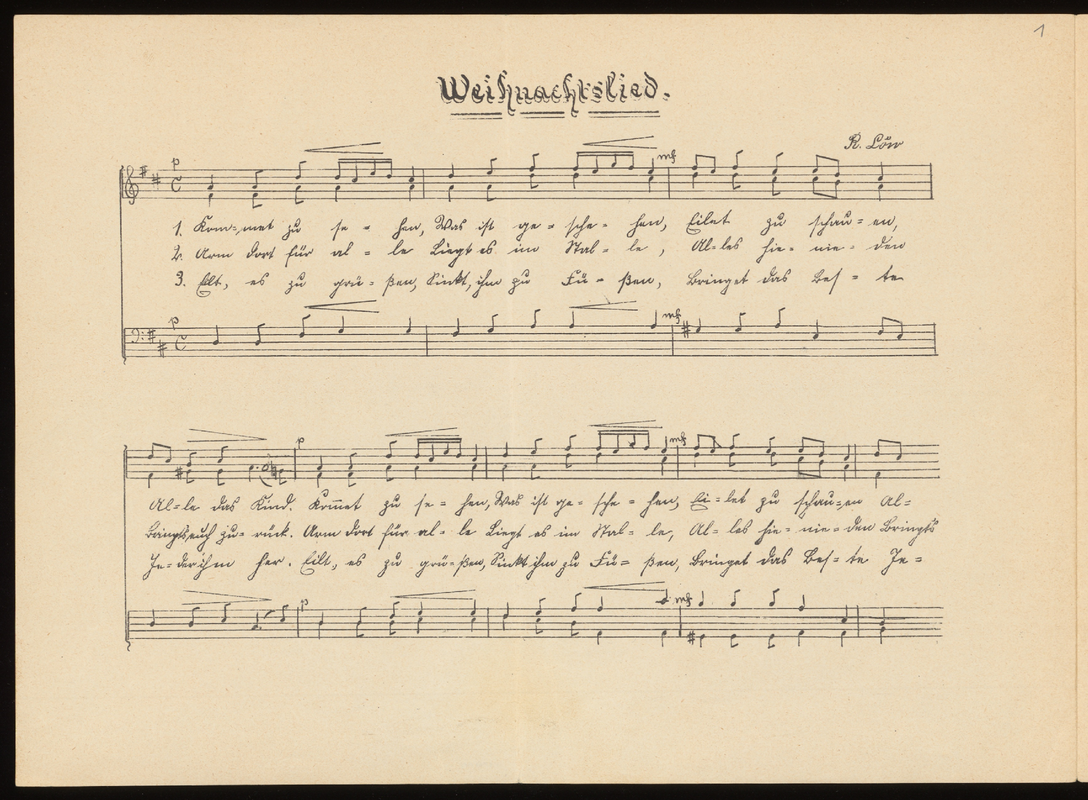 1
Weihnachtslied.
R. Löw
p mf
1. Kom-met zu se - hen, Was ist ge - sche - hen, Eilet zu schau - en,
2. Arm dort für al - le Liegt es im Stal - le, Al-les hie - nie - den
3. Eilt, es zu grü - ßen, Sinkt, ihm zu Fü - ßen, Bringet das Bes - te
p mf
p mf
Al-le das Kind. Kom̅et zu se - hen, Was ist ge - sche - hen, Ei-let zu schau-en Al-
Bringts euch zu - rück. Arm dort für al - le Liegt es im Stal - le, Al - les hie - nie - den Bringts
Je-der ihm her. Eilt, es zu grü-ßen, Sinkt ihm zu Fü - ßen, Bringet das Bes - te Je -
p mf